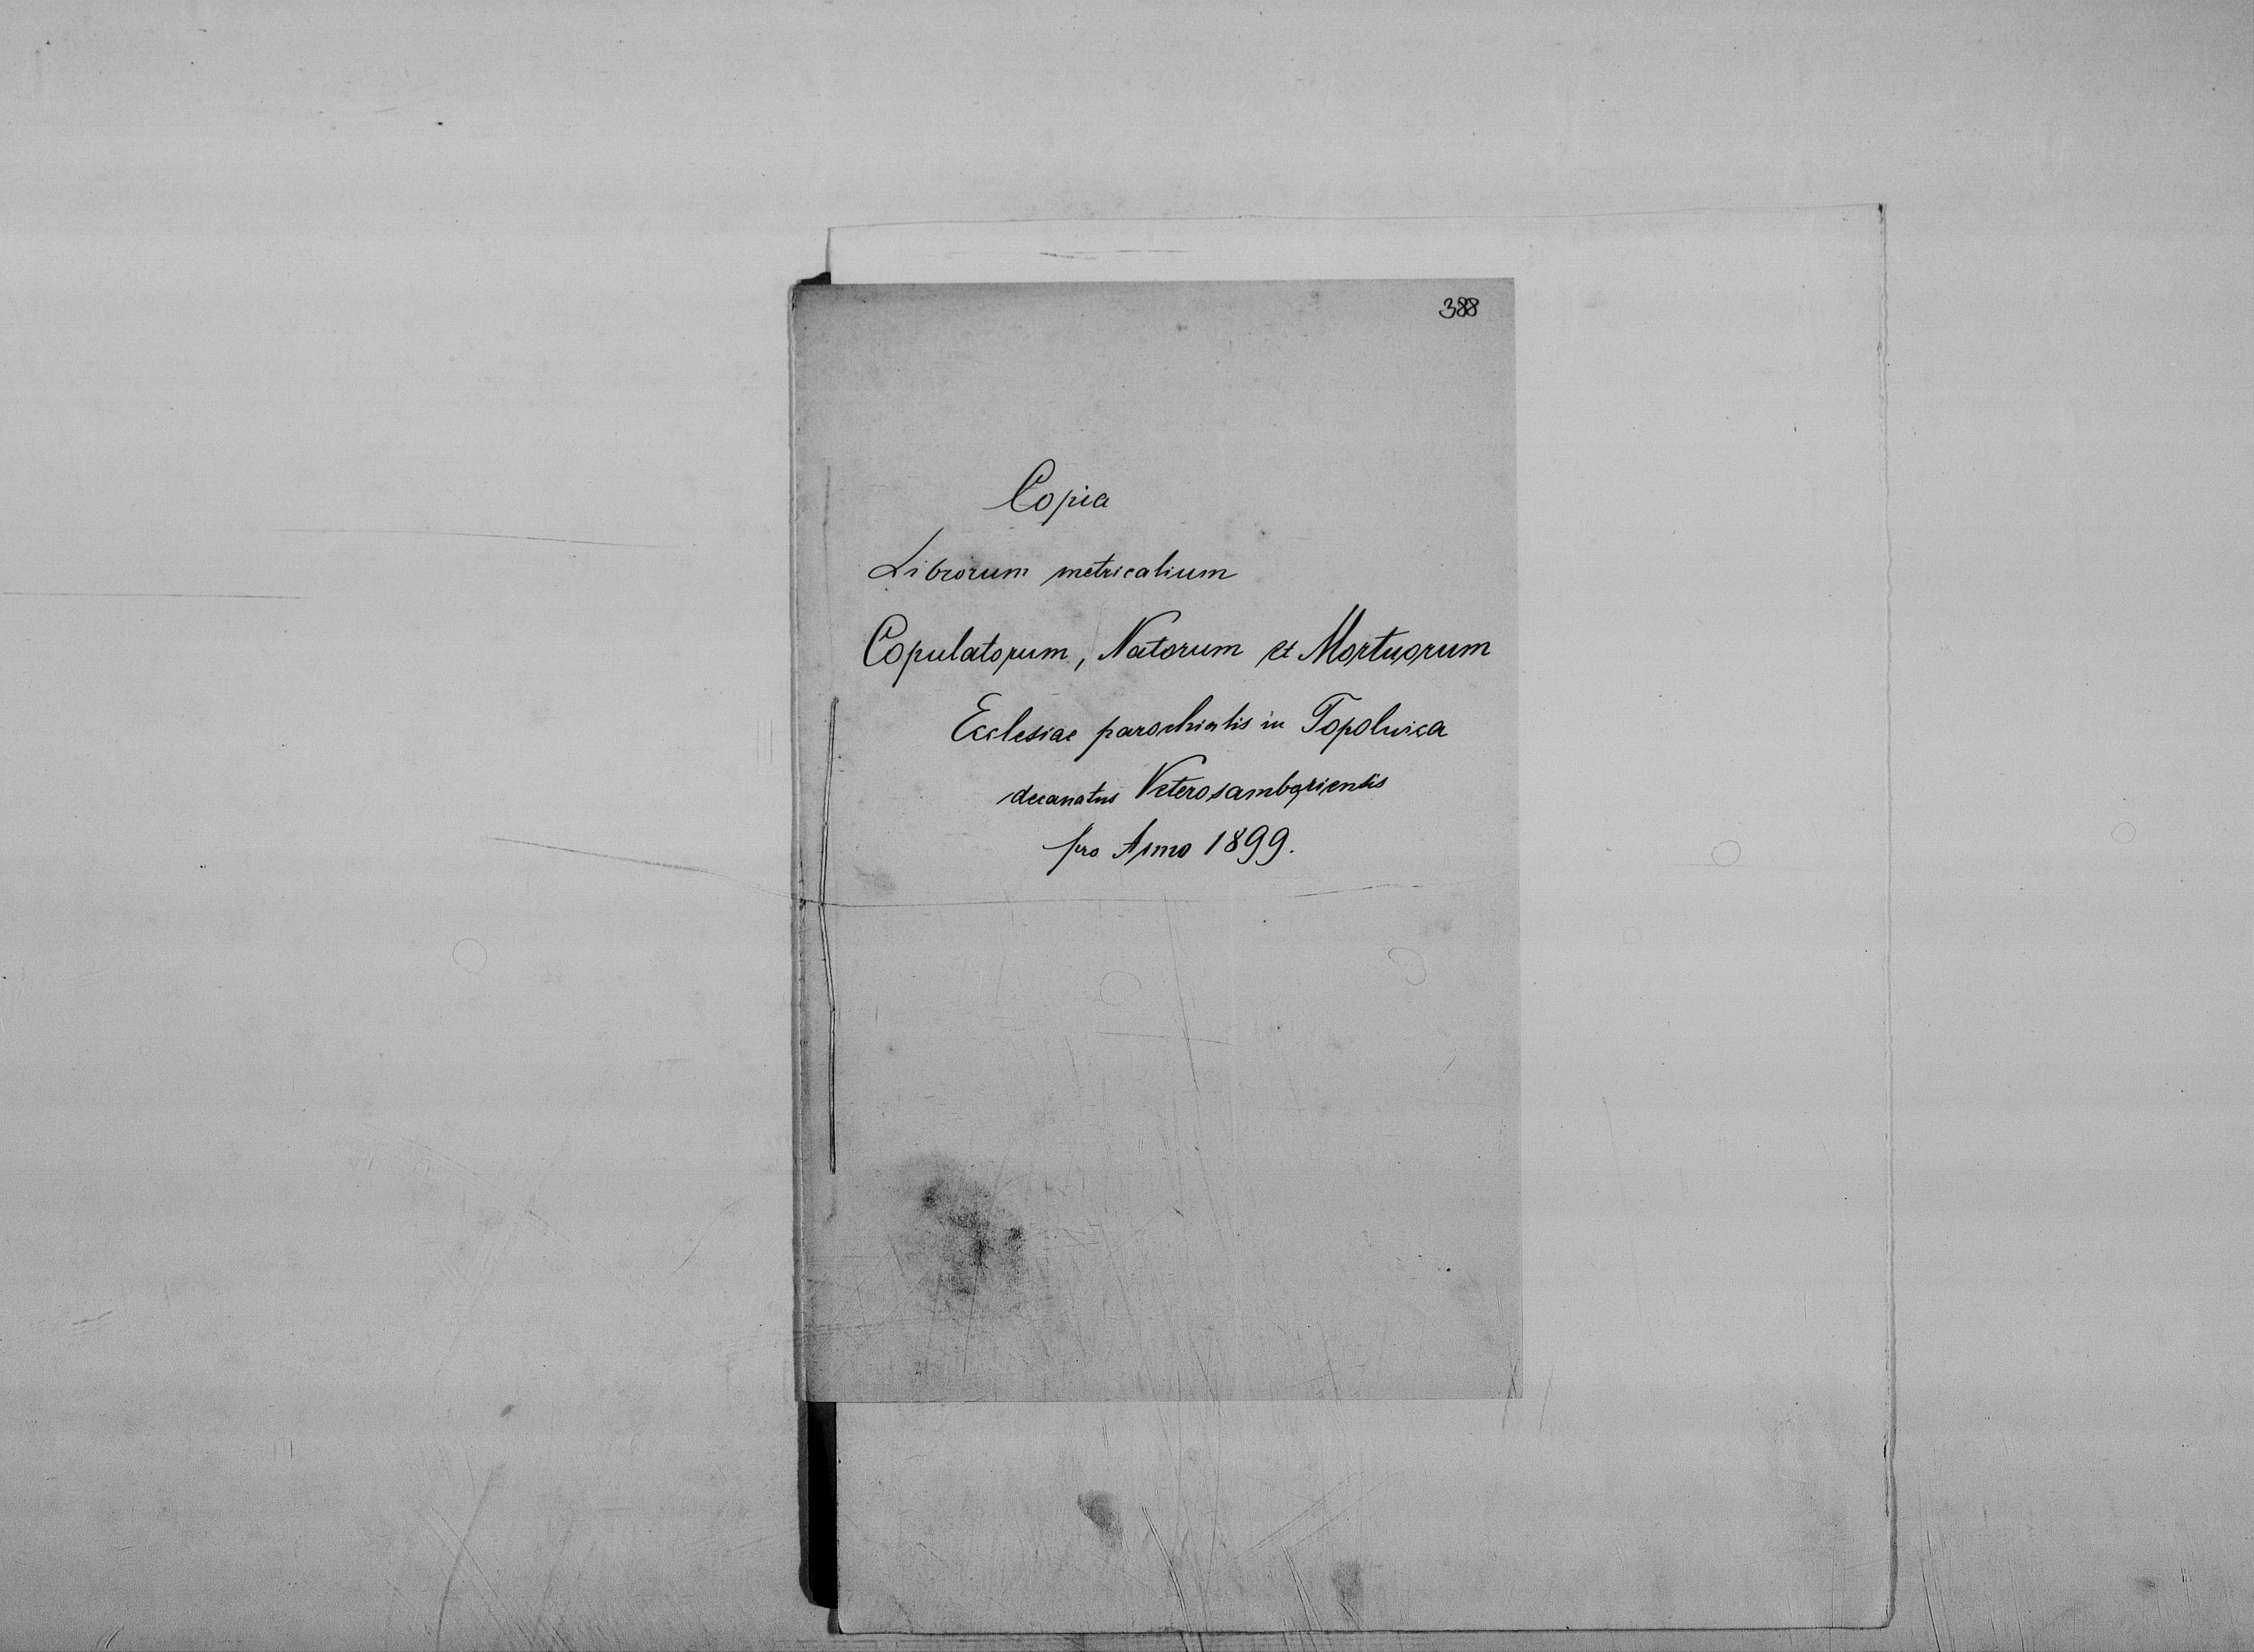 388
Copia
Librorum metricalium
Copulatorum, Natorum et Mortuorum
Ecclesiae parochialis in Topolnica
decanatus Veterosamboriensis
pro Anno 1899.